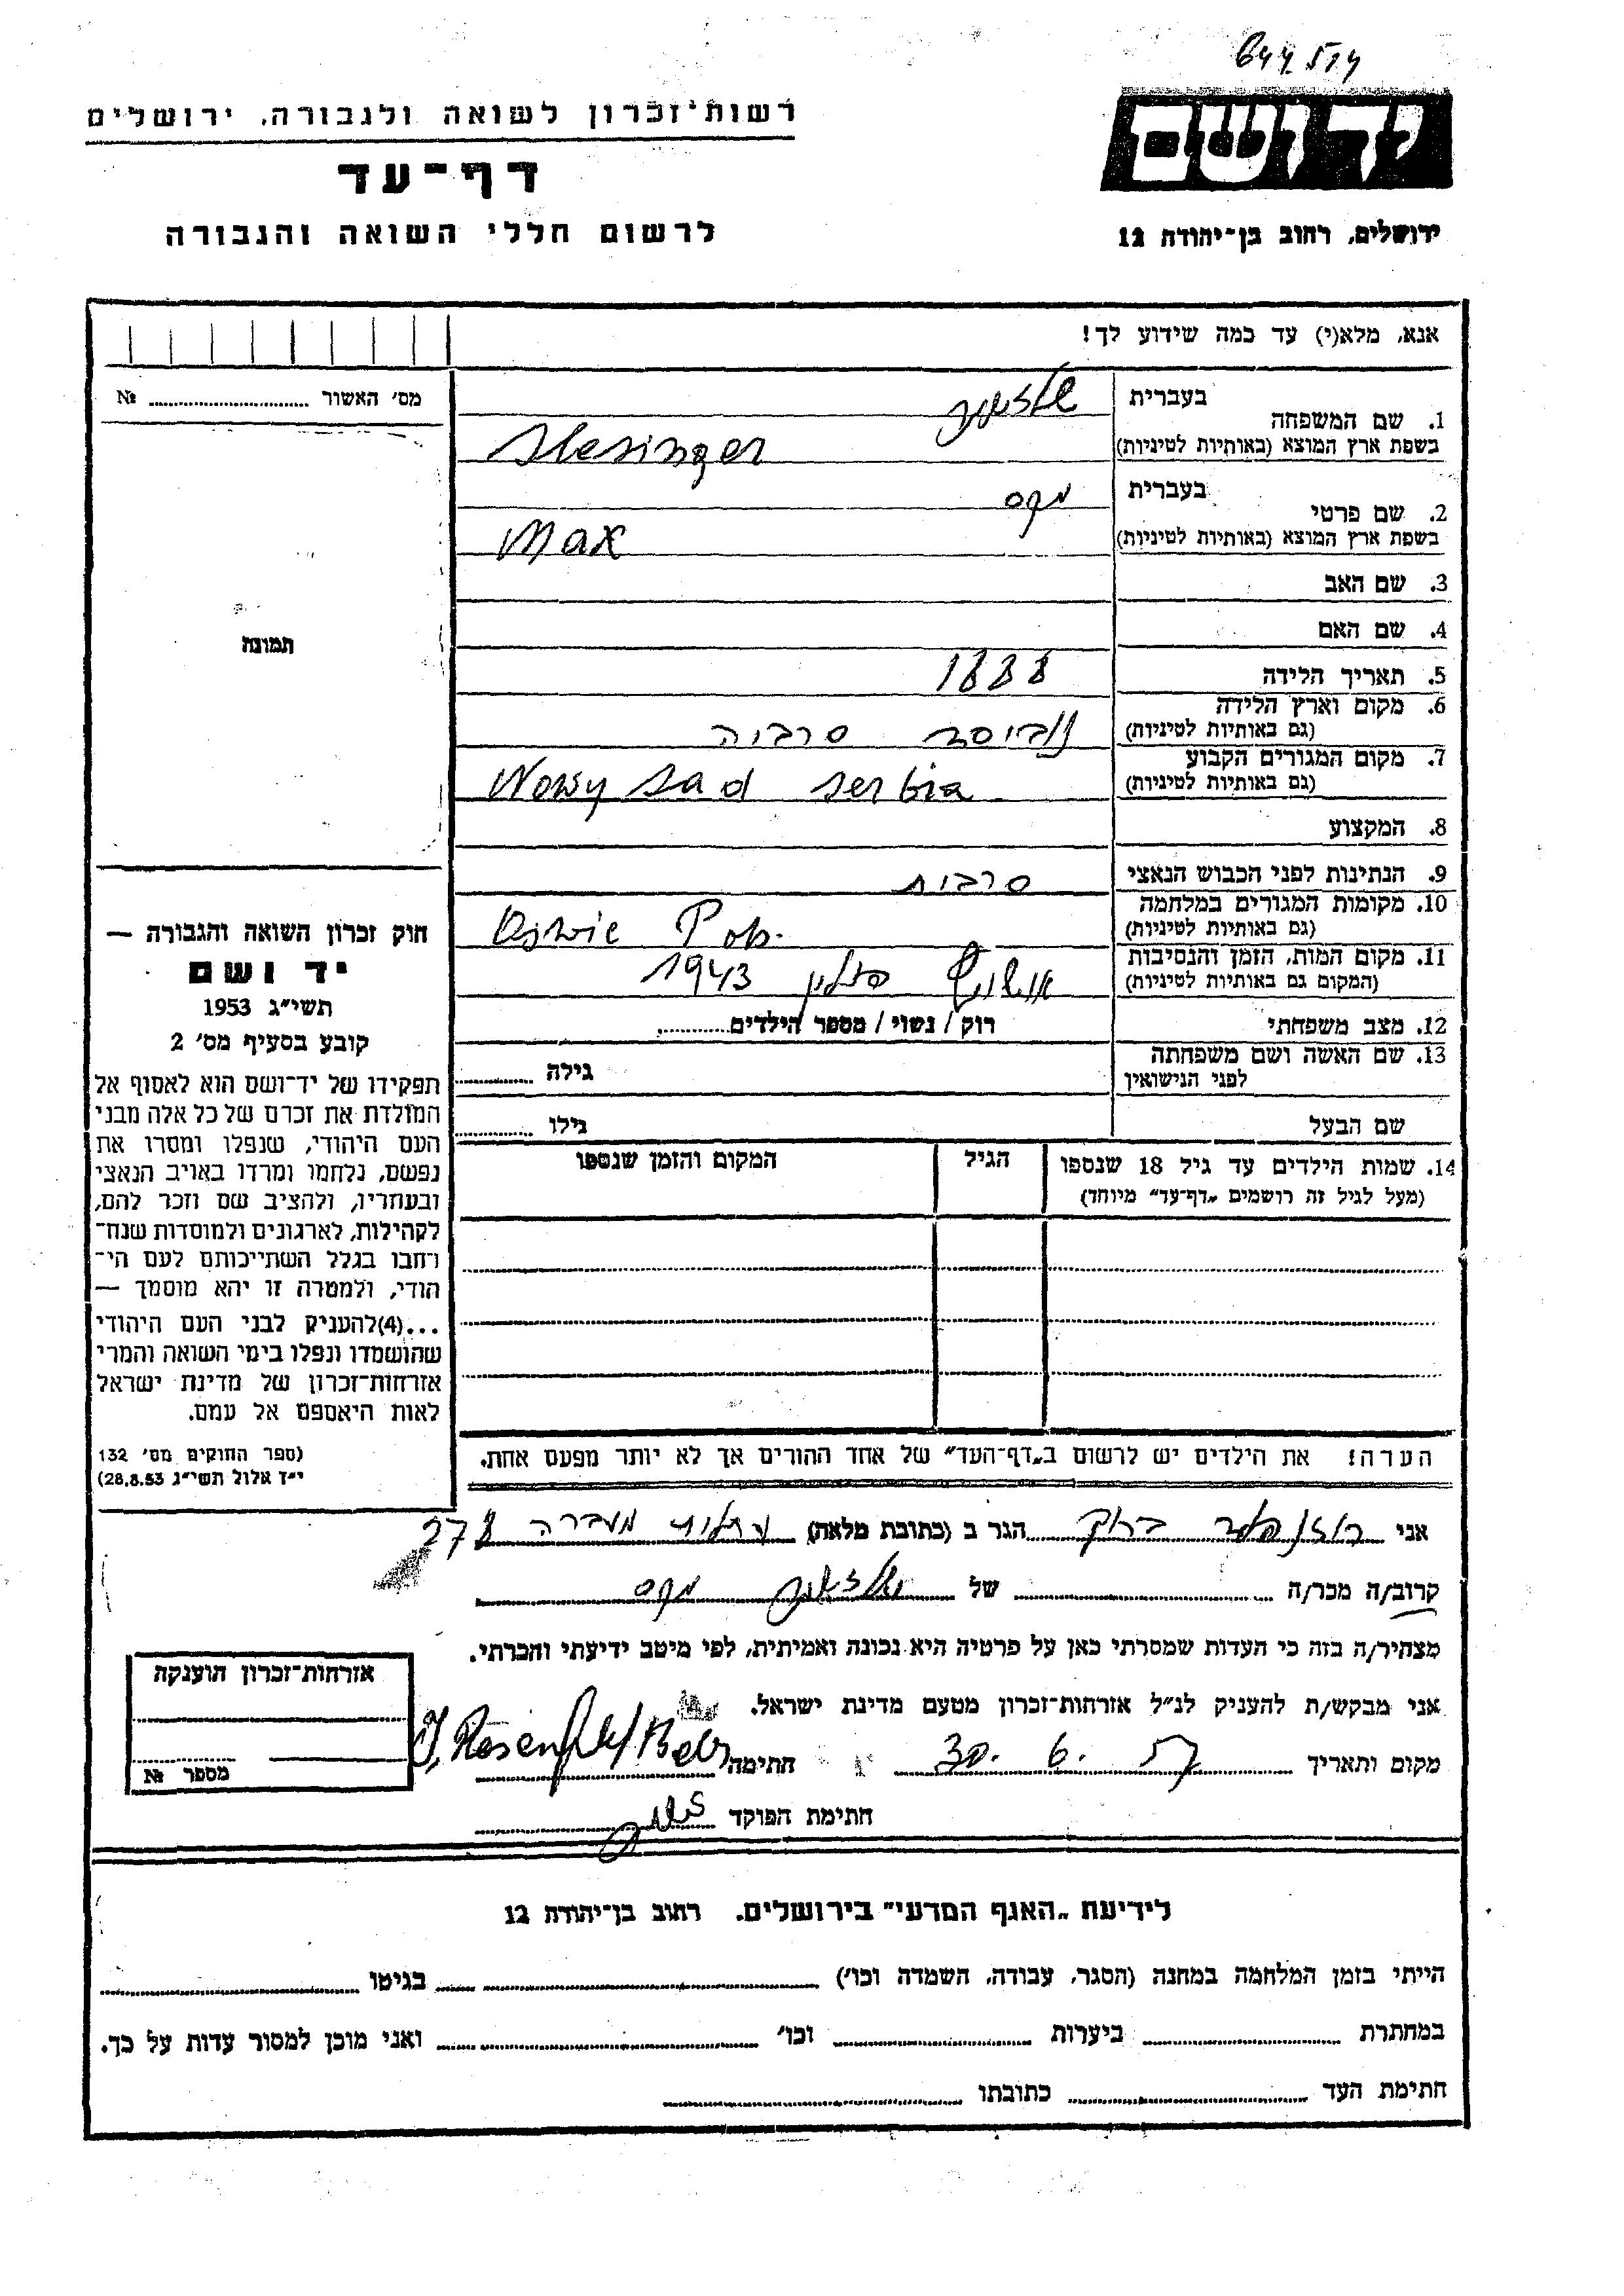 644 514
יד ושם
ירושלים, רחוב בן־יהודה 12
רשות־זכרון לשואה ולגבורה, ירושלים
דף־עד
לרשום חללי השואה והגבורה
אנא, מלא(י) עד כמה שידוע לך!
1. שם המשפחה
בעברית שלזינגר
בשפת ארץ המוצא (באותיות לטיניות) Slesinger
2. שם פרטי
בעברית מקס
בשפת ארץ המוצא (באותיות לטיניות) Max
3. שם האב
4. שם האם
5. תאריך הלידה 1888
6. מקום וארץ הלידה
(גם באותיות לטיניות) נוביסד סרביה
7. מקום המגורים הקבוע
(גם באותיות לטיניות) Nowy Sad serbia
8. המקצוע
9. הנתינות לפני הכבוש הנאצי סרבית
10. מקומות המגורים במלחמה
(גם באותיות לטיניות)
11. מקום המות, הזמן והנסיבות
(המקום גם באותיות לטיניות) 1943
12. מצב משפחתי רוק / נשוי / מספר הילדים
13. שם האשה ושם משפחתה
לפני הנישואין גילה
שם הבעל גילו
14. שמות הילדים עד גיל 18 שנספו הגיל המקום והזמן שנספו
(מעל לגיל זה רושמים „דף־עד” מיוחד)
הערה! את הילדים יש לרשום ב„דף־העד” של אחד ההורים אך לא יותר מפעם אחת.
מס' האשור №
תמונה
חוק זכרון השואה והגבורה —
יד ושם
תשי״ג 1953
קובע בסעיף מס' 2
תפקידו של יד־ושם הוא לאסוף אל
המולדת את זכרם של כל אלה מבני
העם היהודי, שנפלו ומסרו את
נפשם, נלחמו ומרדו באויב הנאצי
ובעוזריו, ולהציב שם וזכר להם,
לקהילות, לארגונים ולמוסדות שנח־
רחבו בגלל השתייכותם לעם הי־
הודי, ולמטרה זו יהא מוסמך —
...(4)להעניק לבני העם היהודי
שהושמדו ונפלו בימי השואה והמרי
אזרחות־זכרון של מדינת ישראל
לאות היאספם אל עמם.
(ספר החוקים מס' 132
י״ז אלול תשי״ג 28.8.53)
אני הגר ב (כתובת מלאה) מעברה 278
קרוב/ה מכר/ה של שלזינגר מקס
מצהיר/ה בזה כי העדות שמסרתי כאן על פרטיה היא נכונה ואמיתית, לפי מיטב ידיעתי והכרתי.
אני מבקש/ת להעניק לנ״ל אזרחות־זכרון מטעם מדינת ישראל.
מקום ותאריך 30. 6. 57 חתימה
חתימת הפוקד
אזרחות־זכרון הוענקה
מספר №
לידיעת „האגף המדעי” בירושלים. רחוב בן־יהודה 12
הייתי בזמן המלחמה במחנה (הסגר, עבודה, השמדה וכו') בגיטו
במחתרת ביערות וכו' ואני מוכן למסור עדות על כך.
חתימת העד כתובתו